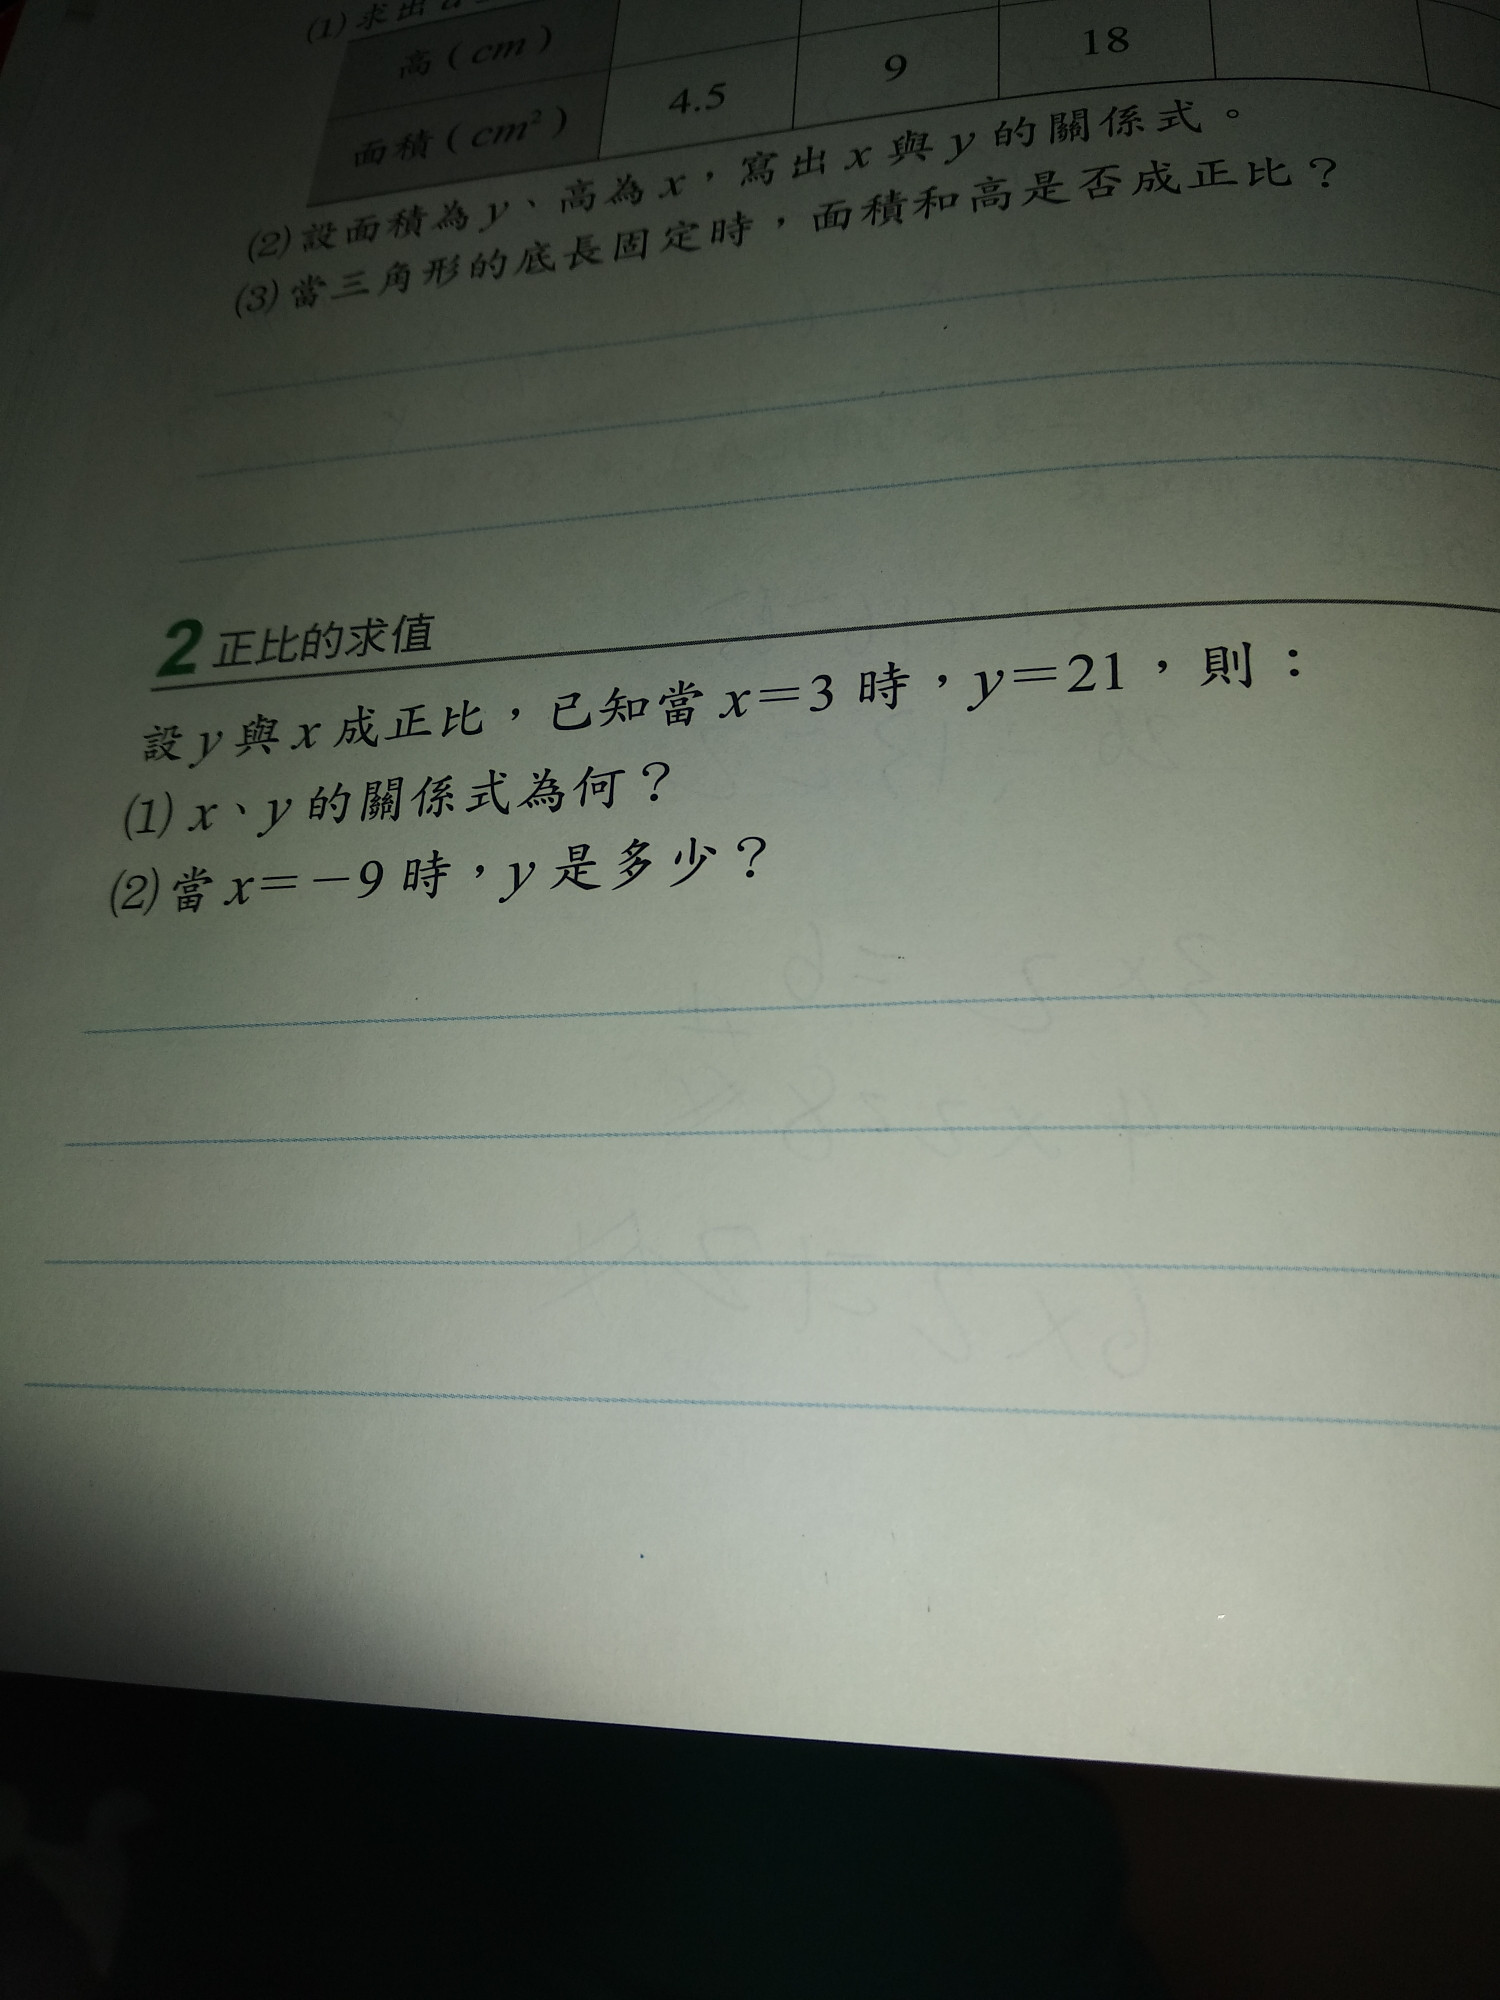 (1)求出
高(cm)
面積(cm²) 4.5 9 18
(2)設面積為y、高為x,寫出x與y的關係式。
(3)當三角形的底長固定時,面積和高是否成正比?
2 正比的求值
設y與x成正比,已知當x=3時,y=21,則:
(1)x、y的關係式為何?
(2)當x=-9時,y是多少?